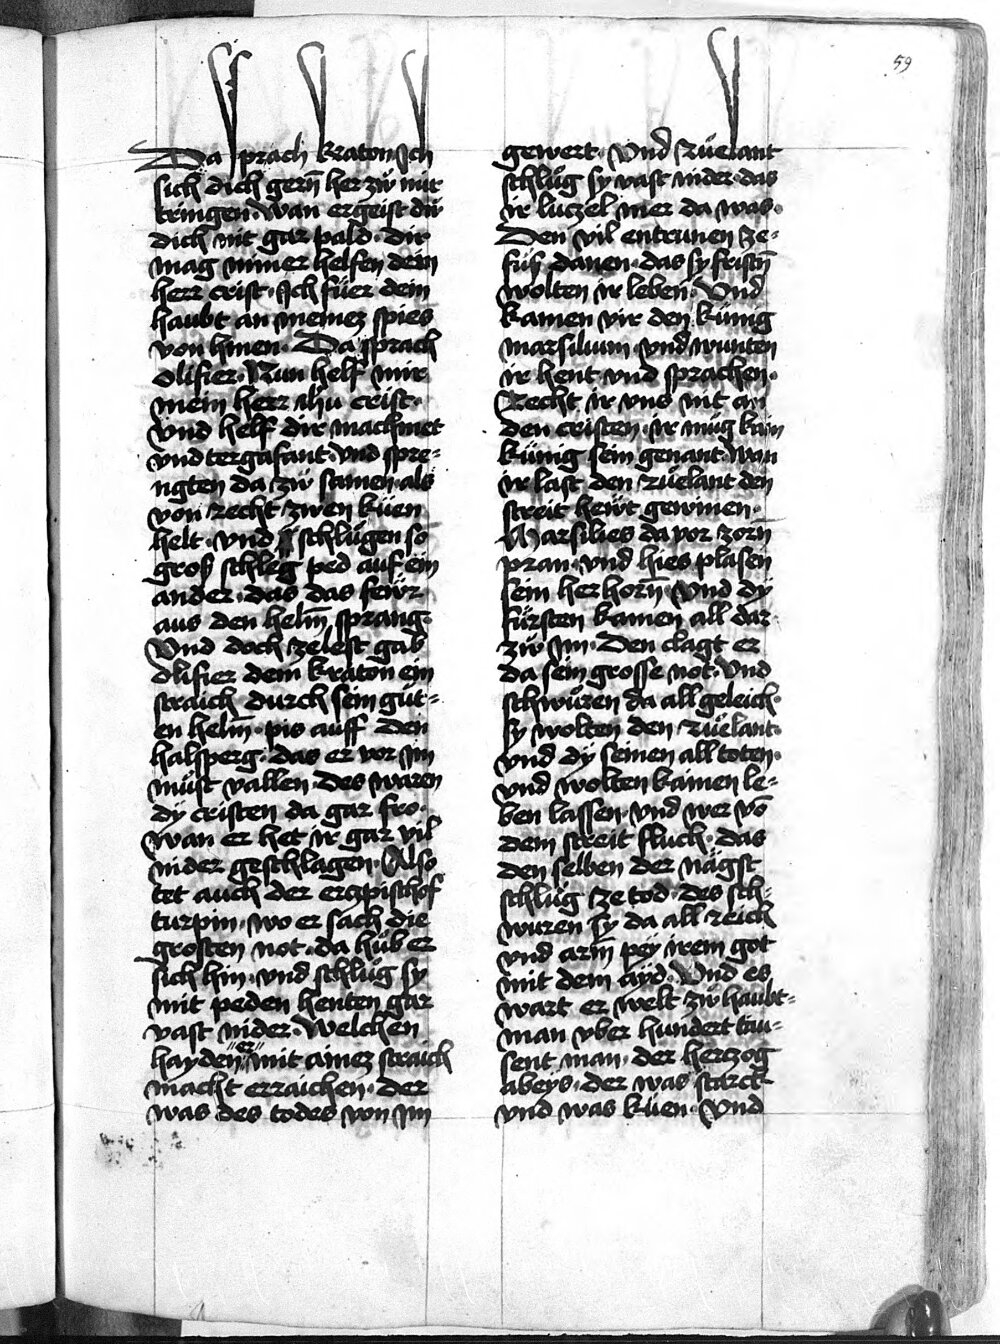 59
Da sprach kraton Ich
sich dich gern̄ her zü mir
tringen. Wan ergeist dü
dich nit gar pald. dir
mag nimer helfen dein
herr crist. Ich füer dein
haubt an meinez spies
von hinen. Da sprach
olifier. Nun helf mir
mein herr ihu crist.
vnd helf dir machmet
vnd tergafant. vnd spre-
ngten da zü samen als
von recht zwen küen
helt. vnd schlügen so
groß schleg ped auf ein
ander. das das fewr
aus den helm̄ sprang.
Vnd doch zelest gab
olifier dem kraton ein
straich durch sein güt-
en helm̄. pis auff den
halsperg. das er vor im
müst vallen. Des waren
dy cristen da gar fro.
wan er het ir gar vil
nider geschlagen. Also
tet auch der erczpischof
turpin. wo er sach die
grosten not. da hüb er
sich hin. vnd schlüg sy
mit peden henten gar
vast nider. Welchen
hayden "er" mit ainez straich
macht erraichen. der
was des todes von im
gewert. Vnd Rüelant
schlüg sy vast nider. das
ir luczel mer da was.
Den vil entrunen ze-
füß danen. das sy fristn̄
wolten ir leben. Vnd
kamen vir den künig
marsilium. vnd wunten
ir hent vnd sprachen.
Recht ir vns nit an
den cristen. ir müg kain
künig sein genant. Wan
ir last den rüelant den
streit hewt gewinen.
Marsilies da vor zorn̄
pran. vnd hies plasen
sein herhorn̄. Vnd dy
fürsten kamen all dar
zü im. Den clagt er
da sein grosse not. Vnd
schwüren da all geleich.
sy wolten den rüelant.
vnd dy seinen all toten.
vnd wolten kainen le-
ben lassen. vnd wer vō
dem streit fluch. das
den selben der nägst
schlüg ze tod. des sch-
wuren sy da all reich
vnd arm̄ pey irem got
mit dem ayd. Vnd es
wart er welt zü haubt-
man vber hundert tau-
sent man. der herczog
abeys. der was starck
vnd was küen. Vnd